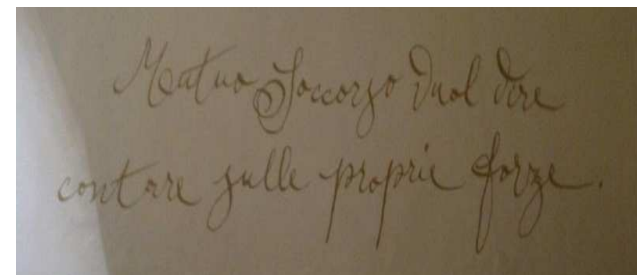 Mutuo Soccorso vuol dire
contare sulle proprie forze.